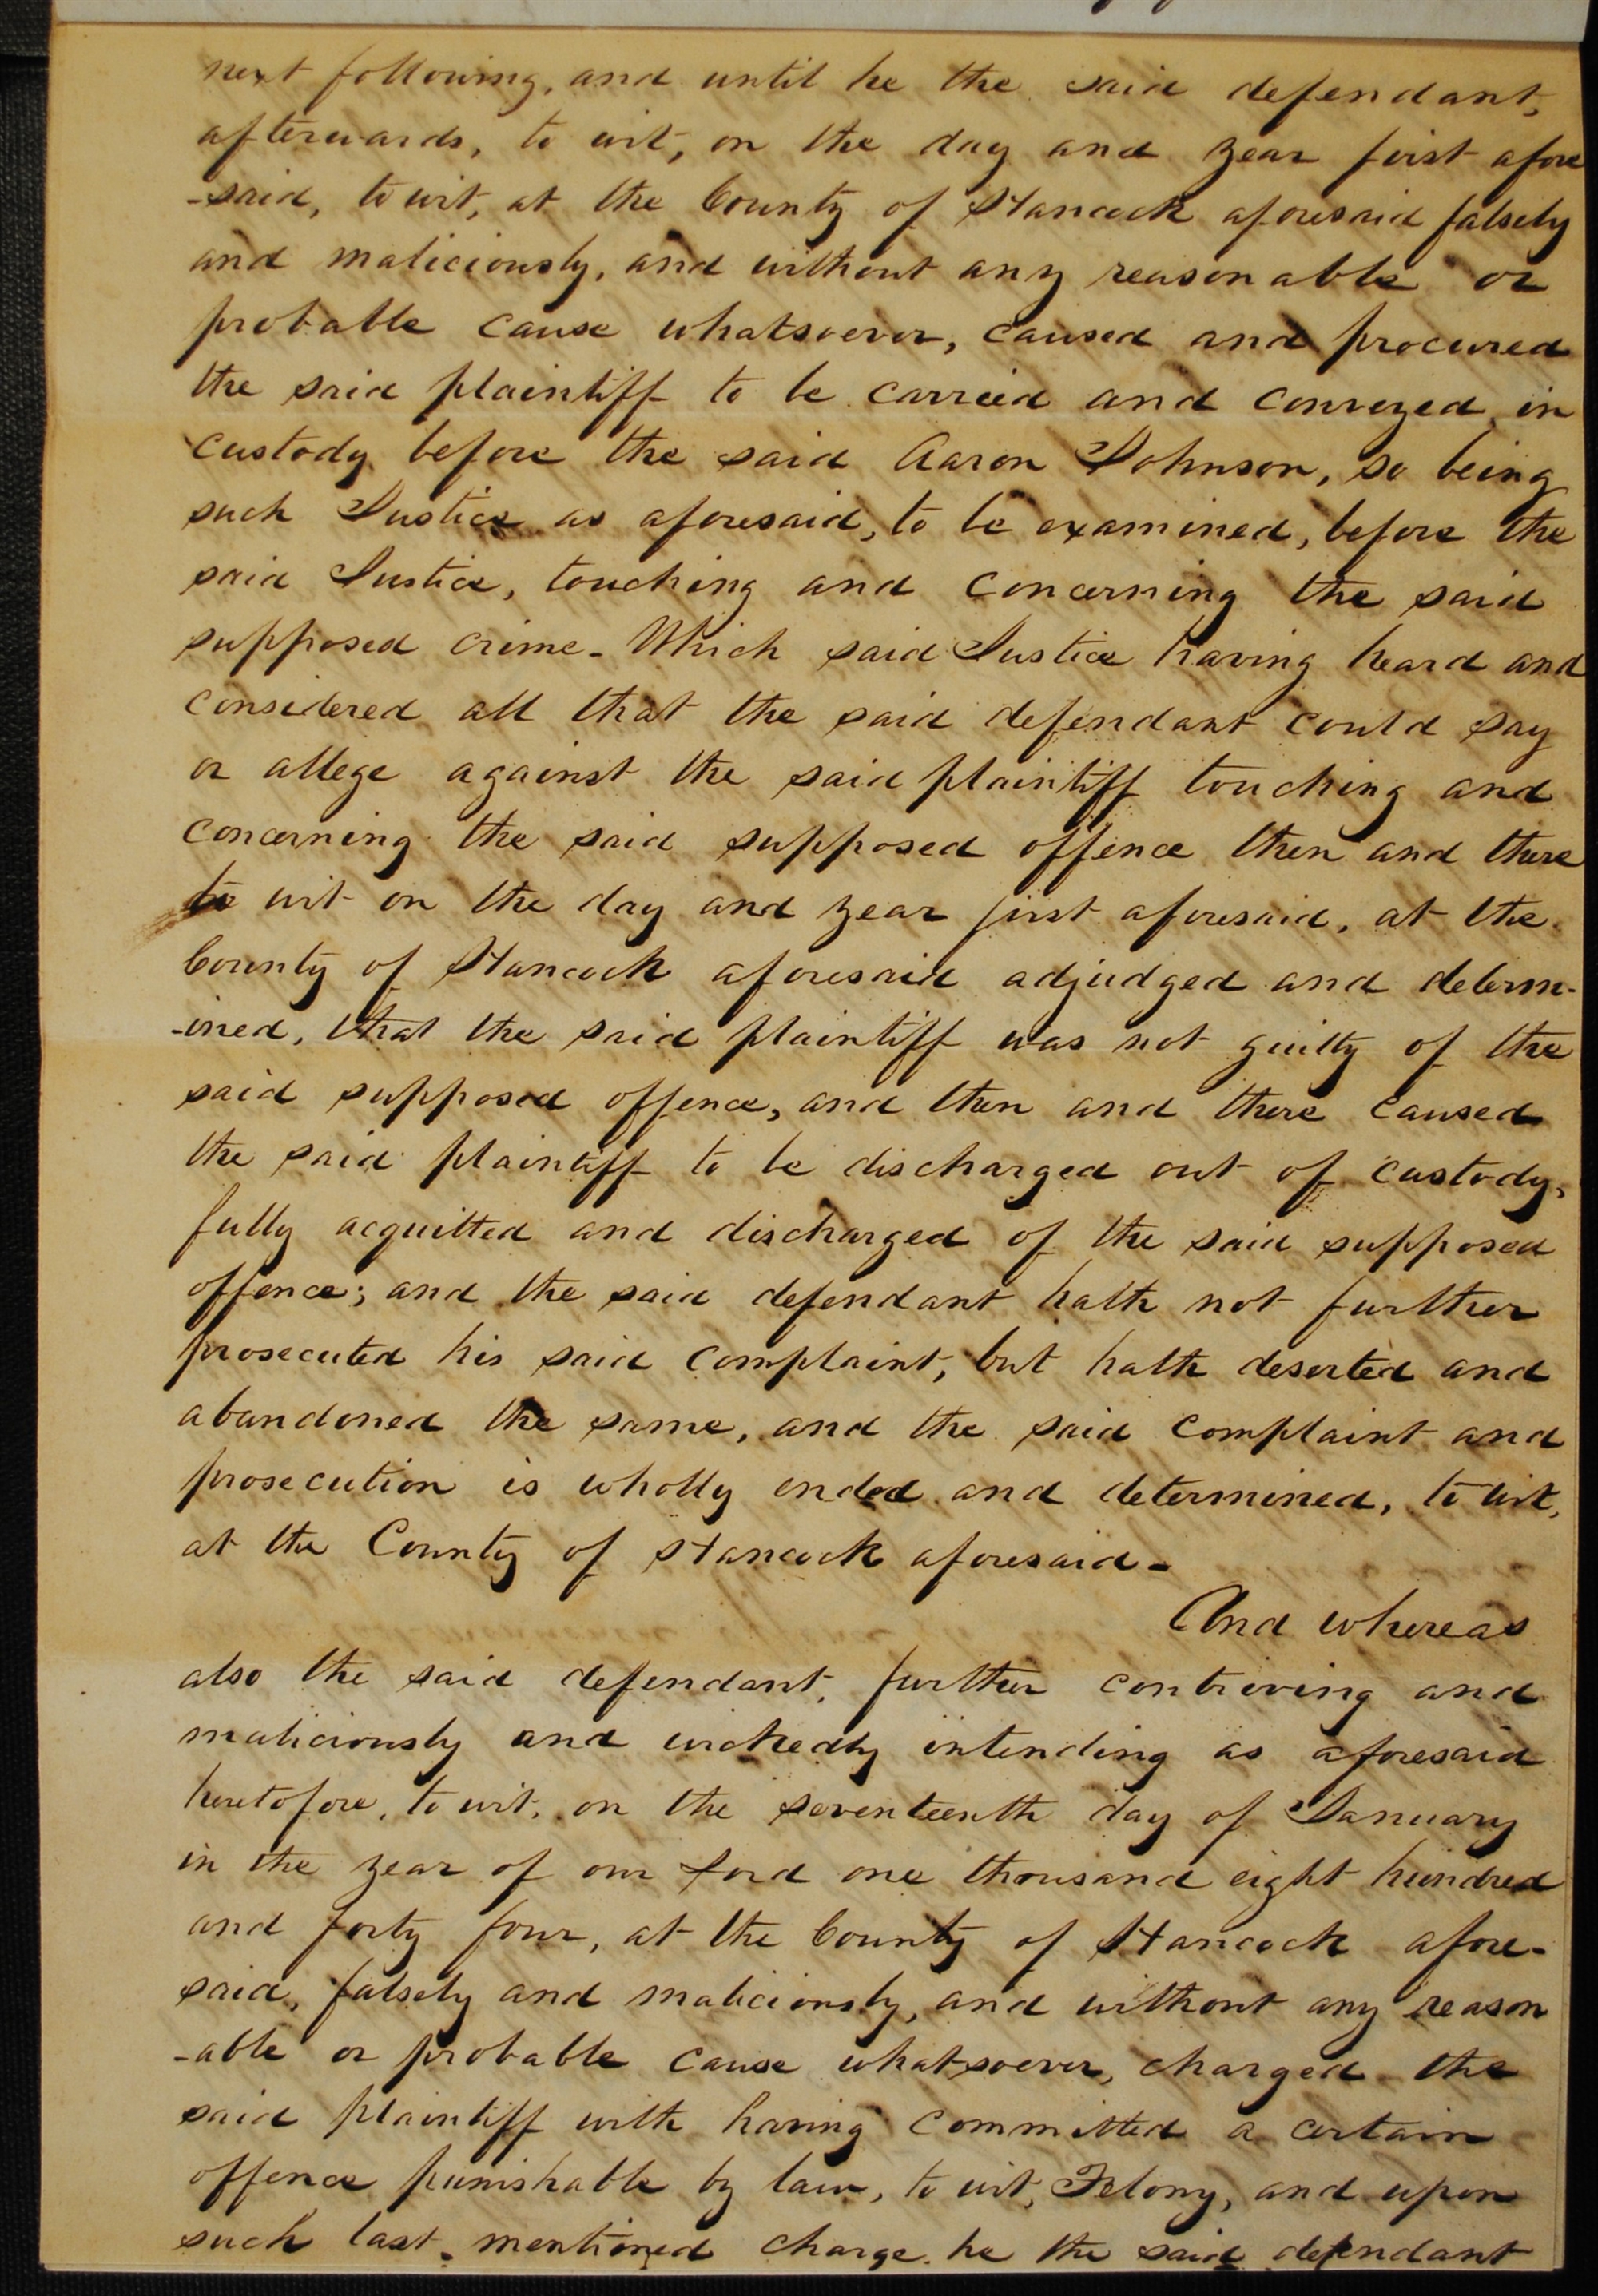 next following, and until he the said defendant,
afterwards, to wit, on the day and year first afore
-said, to wit, at the County of Hancock aforesaid falsely
and maliciously, and without any reasonable or
probable cause whatsoever, caused and procured
the said plaintiff to be carried and conveyed in
custody before the said Aaron Johnson, so being
such Justice as aforesaid, to be examined, before the
said Justice, touching and concerning the said
supposed crime - Which said Justice having heard and
considered all that the said defendant could say
or allege against the said plaintiff touching and
concerning the said supposed offence then and there
to wit on the day and year first aforesaid, at the
County of Hancock aforesaid adjudged and determ-
-ined, that the said plaintiff was not guilty of the
said supposed offence, and then and there caused
the said plaintiff to be discharged out of custody,
fully acquitted and discharged of the said supposed
offence; and the said defendant hath not further
prosecuted his said complaint, but hath deserted and
abandoned the same, and the said complaint and
prosecution is wholly ended and determined, to wit,
at the County of Hancock aforesaid -
And whereas
also the said defendant, further contriving and
maliciously and wickedly intending as aforesaid
heretofore, to wit, on the seventeenth day of January
in the year of our Lord one thousand eight hundred
and forty four, at the County of Hancock afore-
said, falsely and maliciously, and without any reason
-able or probable cause whatsoever, charged the
said plaintiff with having committed a certain
offence punishable by law, to wit, Felony, and upon
such last mentioned charge he the said defendant